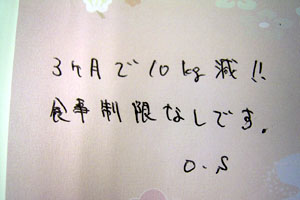 3ケ月で10kg減!!
食事制限なしです。
O.S